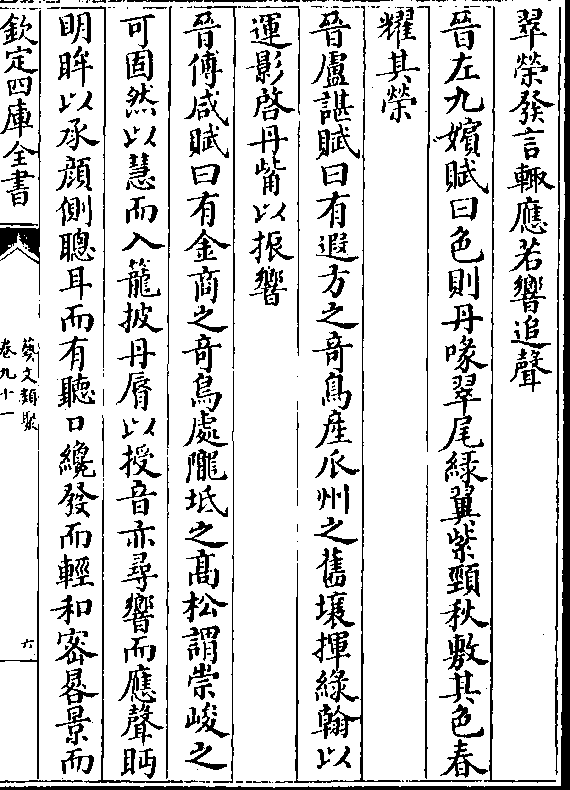 翠榮發言輙應若響追聲
晉左九嬪賦曰色則丹喙翠尾緑翼紫頸秋敷其色春
耀其榮
晉盧諶賦曰有遐方之竒鳥産瓜州之舊壤揮綠翰以
運影啓丹觜以振響
晉傅咸賦曰有金商之竒鳥處隴坻之髙松謂崇峻之
可固然以慧而入籠披丹脣以授音亦尋響而應聲眄
明眸以承顔側聰耳而有聽口纔發而輕和密晷景而
欽定四庫全書
藝文類聚
卷九十一
六